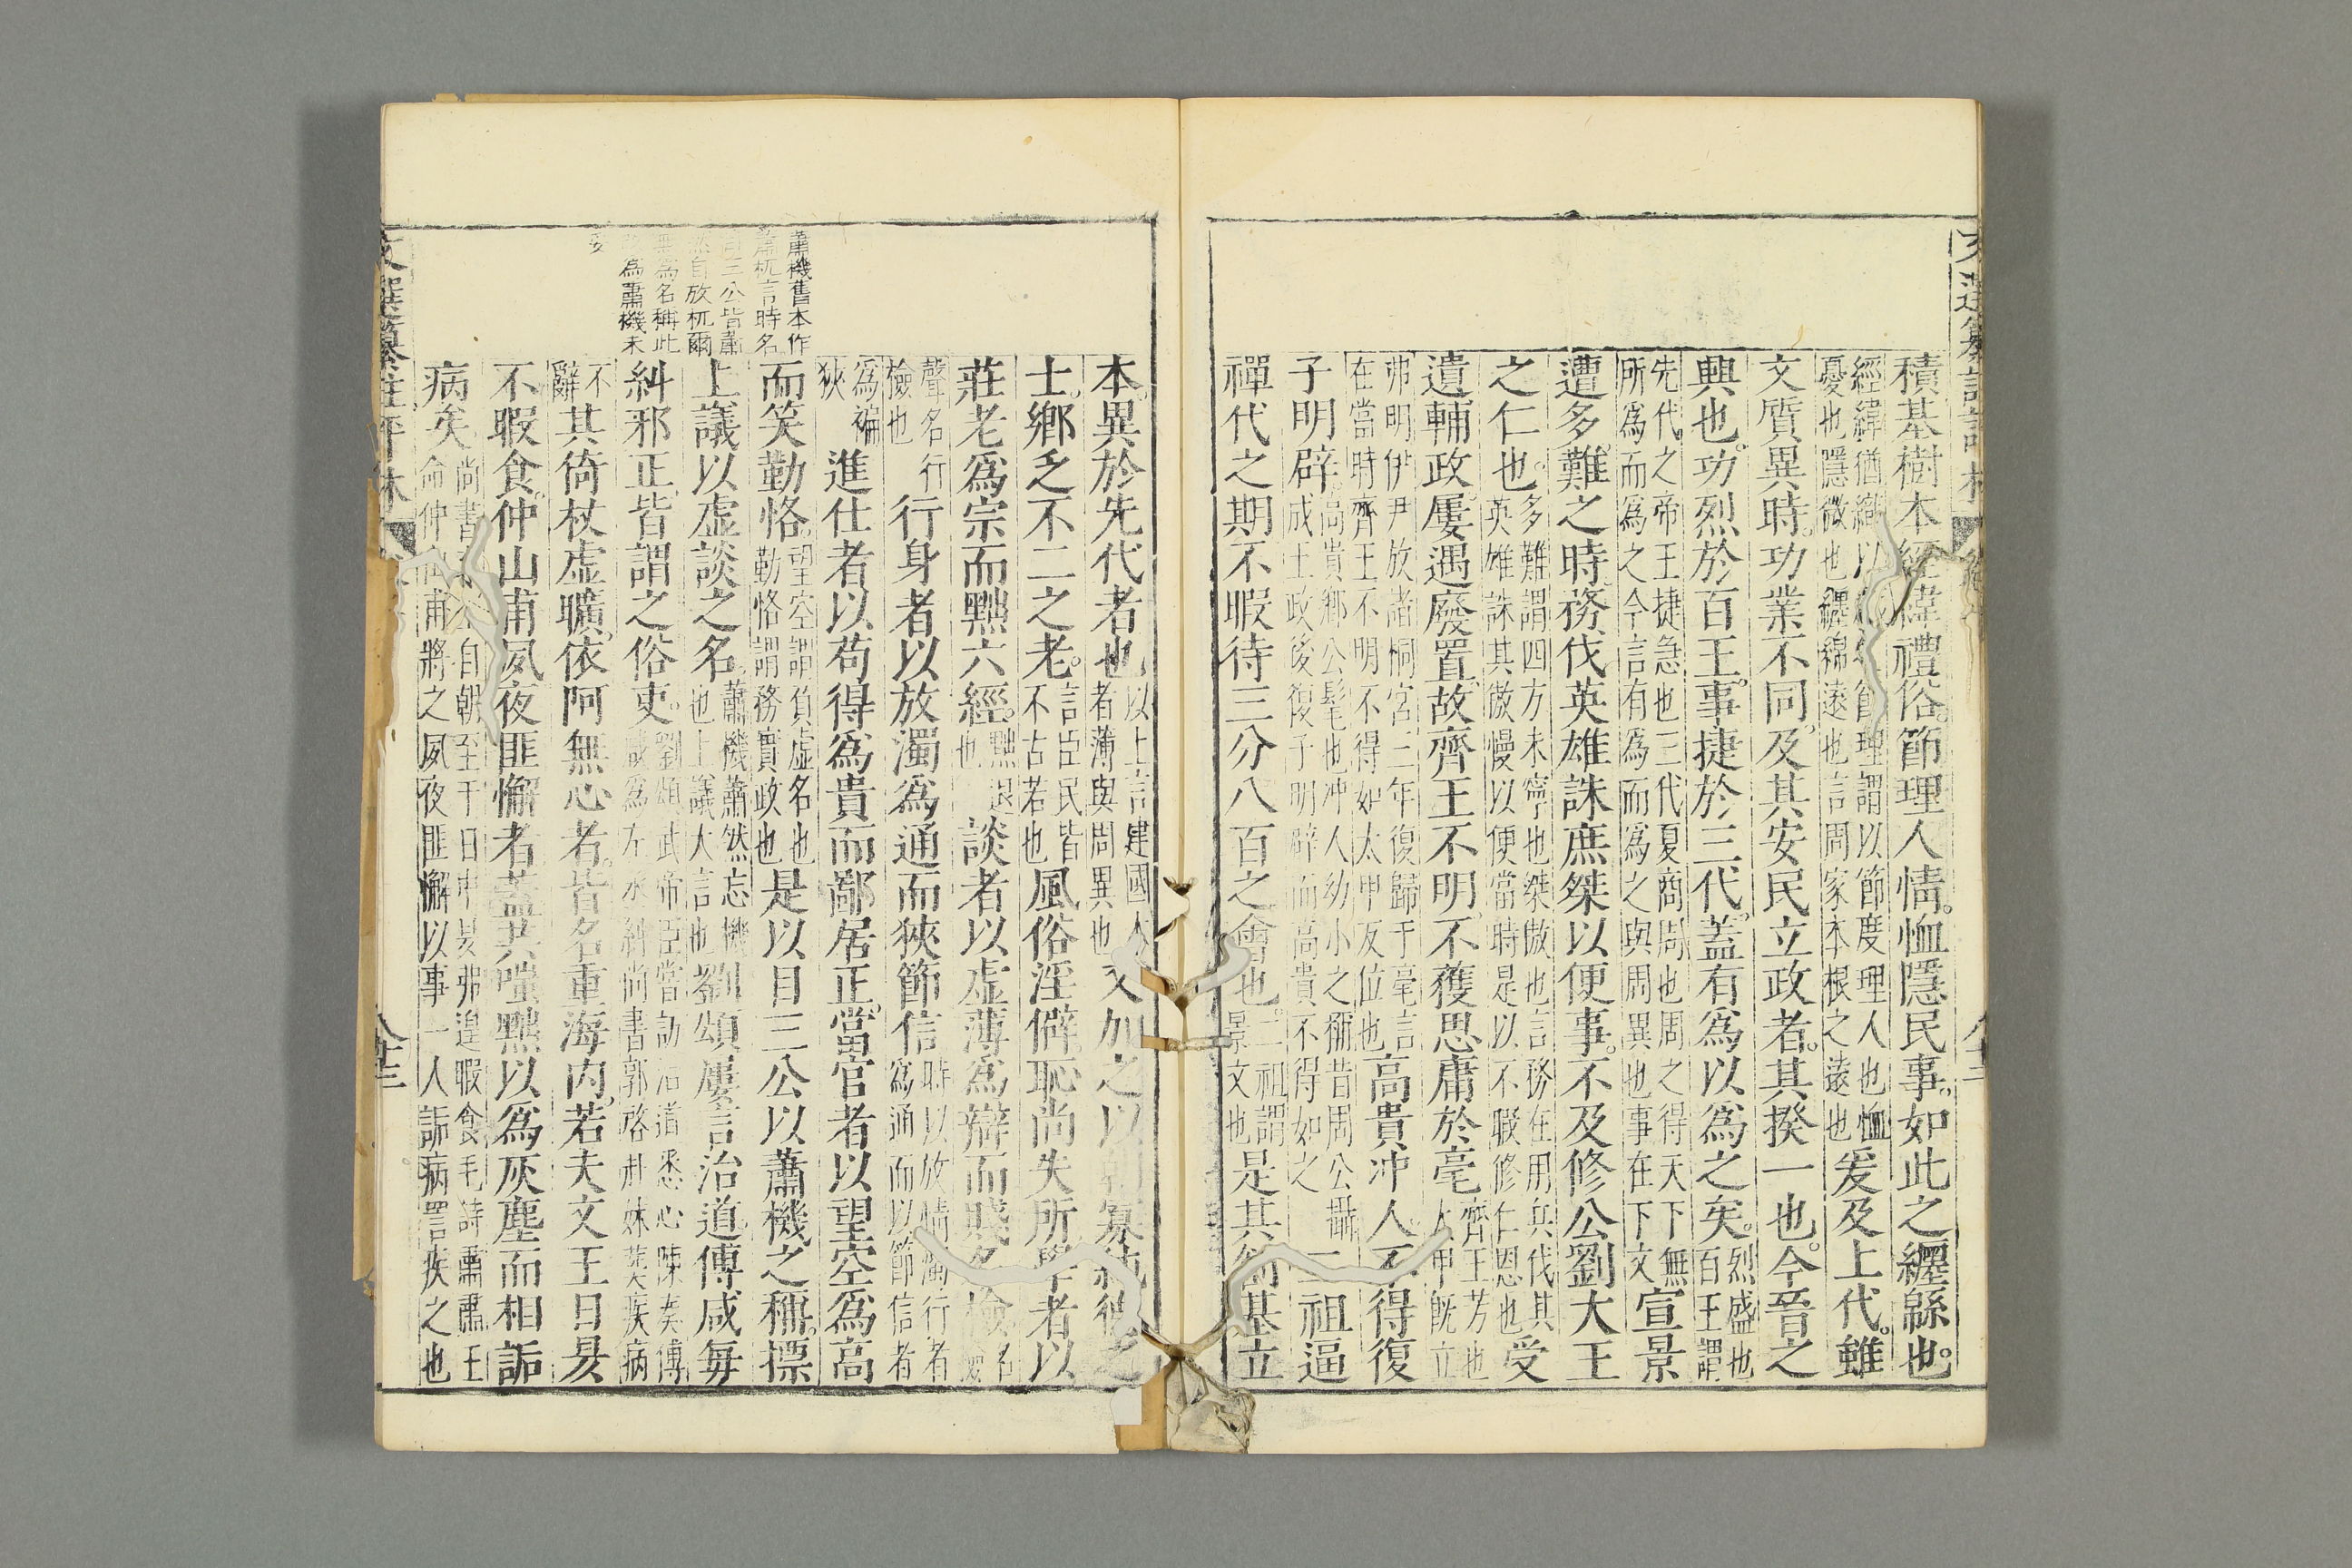 積基樹本經緯禮俗節理人情恤隱民事如此之纒緜也
經緯猶織以節理謂以節度理人也恤
憂也隱微也纒綿遠也言周家本根之遠也
爰及上代雖
文質異時功業不同及其安民立政者其揆一也今晉之
興也功烈於百王事捷於三代蓋有爲以爲之矣
烈盛也
百王謂
先代之帝王捷急也三代夏商周也周之得天下無
所爲而爲之今言有爲而爲之與周異也事在下文
宣景
遭多難之時務伐英雄誅庶桀以便事不及修公劉大王
之仁也
多難謂四方未寧也桀傲也言務在用兵伐其
英雄誅其傲慢以便當時是以不暇修仁恩也
受
遺輔政屢遇廢置故齊王不明不獲思庸於亳
齊王芳也
人甲旣立
弗明伊尹放諸桐宮三年復歸于亳言
在當時齊王不明不得如太甲反位也
高貴冲人不得復
子明辟
高貴鄉公髦也冲人幼小之稱昔周公攝
成王政後復子明辟而高貴不得如之
二祖逼
禪代之期不暇待三分八百之會也
二祖謂
景文也
是其創基立
本異於先代者也
以上言建國人
者薄與周異也
又加之以朝寡純德之
士鄉乏不二之老
言臣民皆
不古若也
風俗淫僻恥尚失所學者以
莊老爲宗而黜六經
黜退
也
談者以虛薄爲辯而賤名檢
名
檢
聲名行
檢也
行身者以放濁爲通而狹節信
時以放情濁行者
爲通而以節信者
爲褊
狹
進仕者以苟得爲貴而鄙居正當官者以望空爲高
而笑勤恪
望空謂負虛名也
勤恪謂務實政也
是以目三公以蕭機之稱標
上議以虛談之名
蕭機蕭然忘機
也上議大言也
劉頌屢言治道傅咸每
糾邪正皆謂之俗吏
劉頌武帝臣當訪治道悉心陳奏傅
咸爲左丞糾尚書郭啓赴妹葬疾病
不
辭
其倚杖虛曠依阿無心者皆名重海内若夫文王日昃
不暇食仲山甫夙夜匪懈者蓋共嗤黜以爲灰塵而相詬
病矣
尚書
自朝至于日中昃弗遑暇食毛詩肅肅王
命仲山甫將之夙夜匪懈以事一人詬病詈疾之也
蕭機舊本作
蕭杌言時名
目三公皆蕭
然自放杌爾
無爲名稱此
作爲蕭機未
安